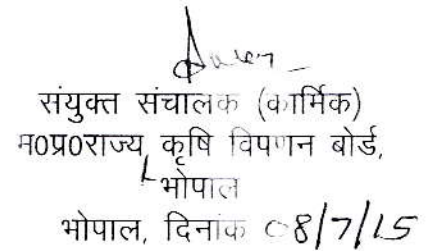 संयुक्त संचालक (कार्मिक)
म0प्र0राज्य कृषि विपणन बोर्ड,
भोपाल
भोपाल, दिनांक 08/7/15